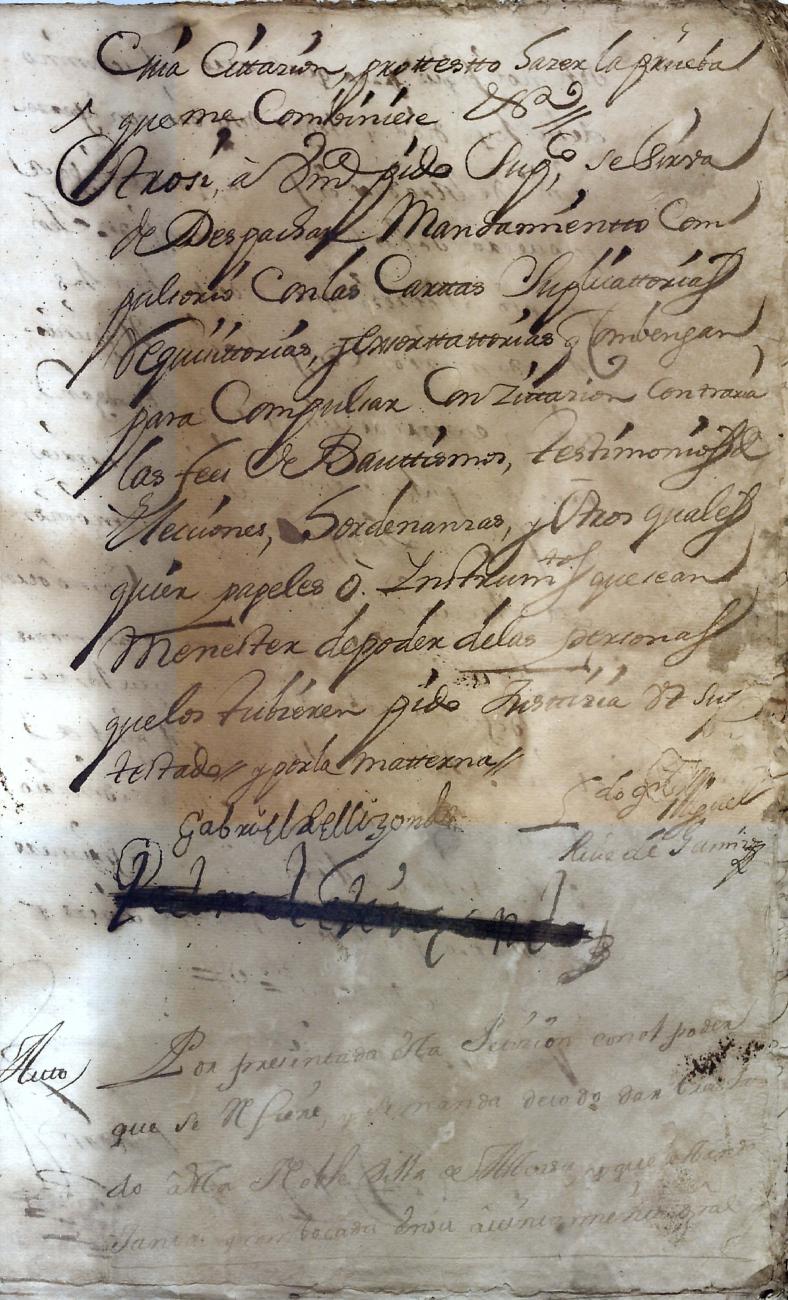 Chia Cittazion, prottestto hazer la prueba
que me Combiniese &a//
Otrosi, à Vmd pido Supco, se sirva
de Despachar Mandamientto Com
pulsorio Con las Carttas Suplicattorias
Requisittorias, y exorttattorias q Combengan
para Compulsar Con Zittazion Contraria
las fees de Bauttismos, testimonios de
Elecciones, hordenanzas, y Otros quales
quier papeles ò Instrumtos que sean
Menester de poder de las personas
que los tubieren pido Justtizia Vt su
p
testado// y por la matterna//
Gabriel de Elizondo
do Miguel
Ruiz de
Pedro de
Autto
Por presentada esta Petizion con el poder
que se refiere, y se manda de todo dar trasla
do à la Noble Villa de y que
Santa combocada en su aiuntamiento gral